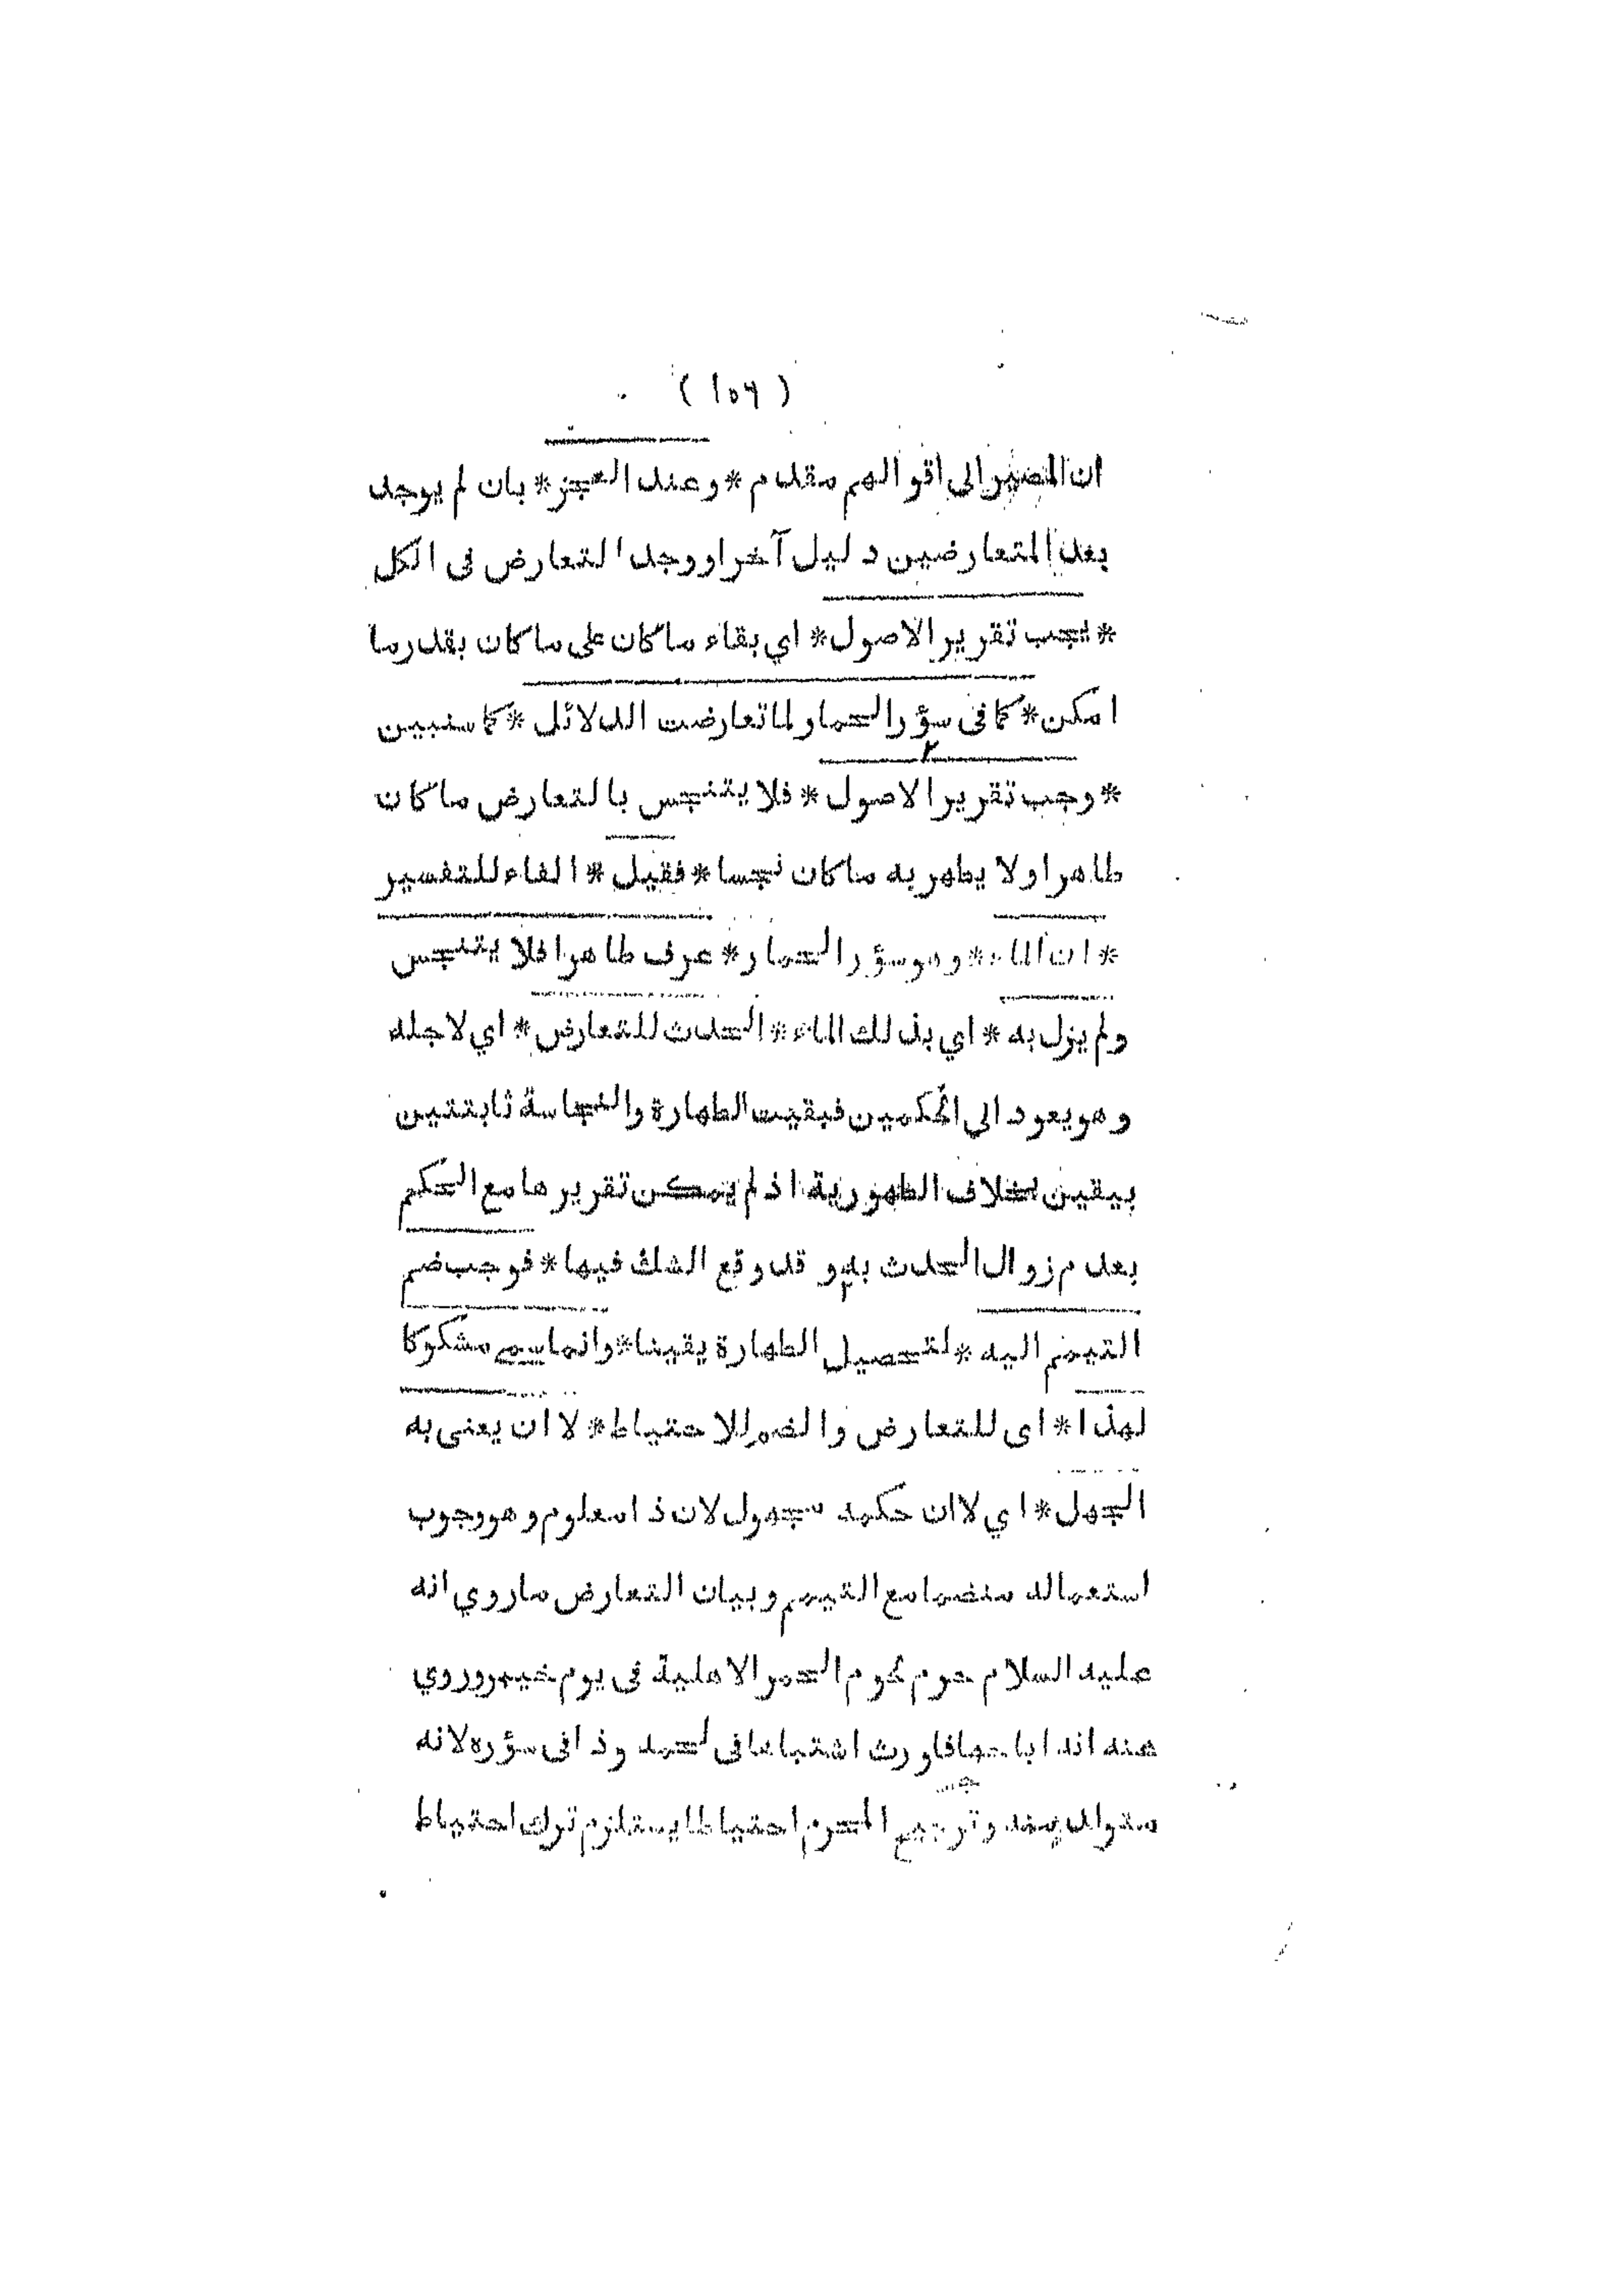 ( ١٥٦ )
ان المصير الى اقوالهم مقدم * وعند العجز * بان لم يوجد
بعد المتعارضين دليل آخر او وجد التعارض فى الكل
* يجب تقرير الاصول * اي بقاء ما كان على ما كان بقدر ما
امكن * كما فى سؤر الحمار لما تعارضت الدلائل * كما سنبين
* وجب تقرير الاصول * فلا يتنجس بالتعارض ما كان
طاهرا ولا يطهر به ما كان نجسا * فقيل * الفاء للتفسير
* ان الماء * وهو سؤر الحمار * عرف طاهرا فلا يتنجس
ولم يزل به * اي بذلك الماء * الحدث للتعارض * اي لاجله
وهو يعود الى الحكمين فبقيت الطهارة والنجاسة ثابتتين
بيقين بخلاف الطهورية اذ لم يمكن تقريرها مع الحكم
بعدم زوال الحدث به و قد وقع الشك فيها * فوجب ضم
التيمم اليه * لتحصيل الطهارة يقينا * وانما سمى مشكوكا
لهذا * اى للتعارض والضم للاحتياط * لا ان يعنى به
الجهل * اي لا ان حكمه مجهول لان ذا معلوم وهو وجوب
استعماله منضما مع التيمم وبيان التعارض ما روي انه
عليه السلام حرم لحوم الحمر الاهلية فى يوم خيبر وروي
عنه انه اباحها فاورث اشتباها فى لحمه وذا فى سؤره لانه
متولد منه وترجيح المحرم احتياطا يستلزم ترك احتياط